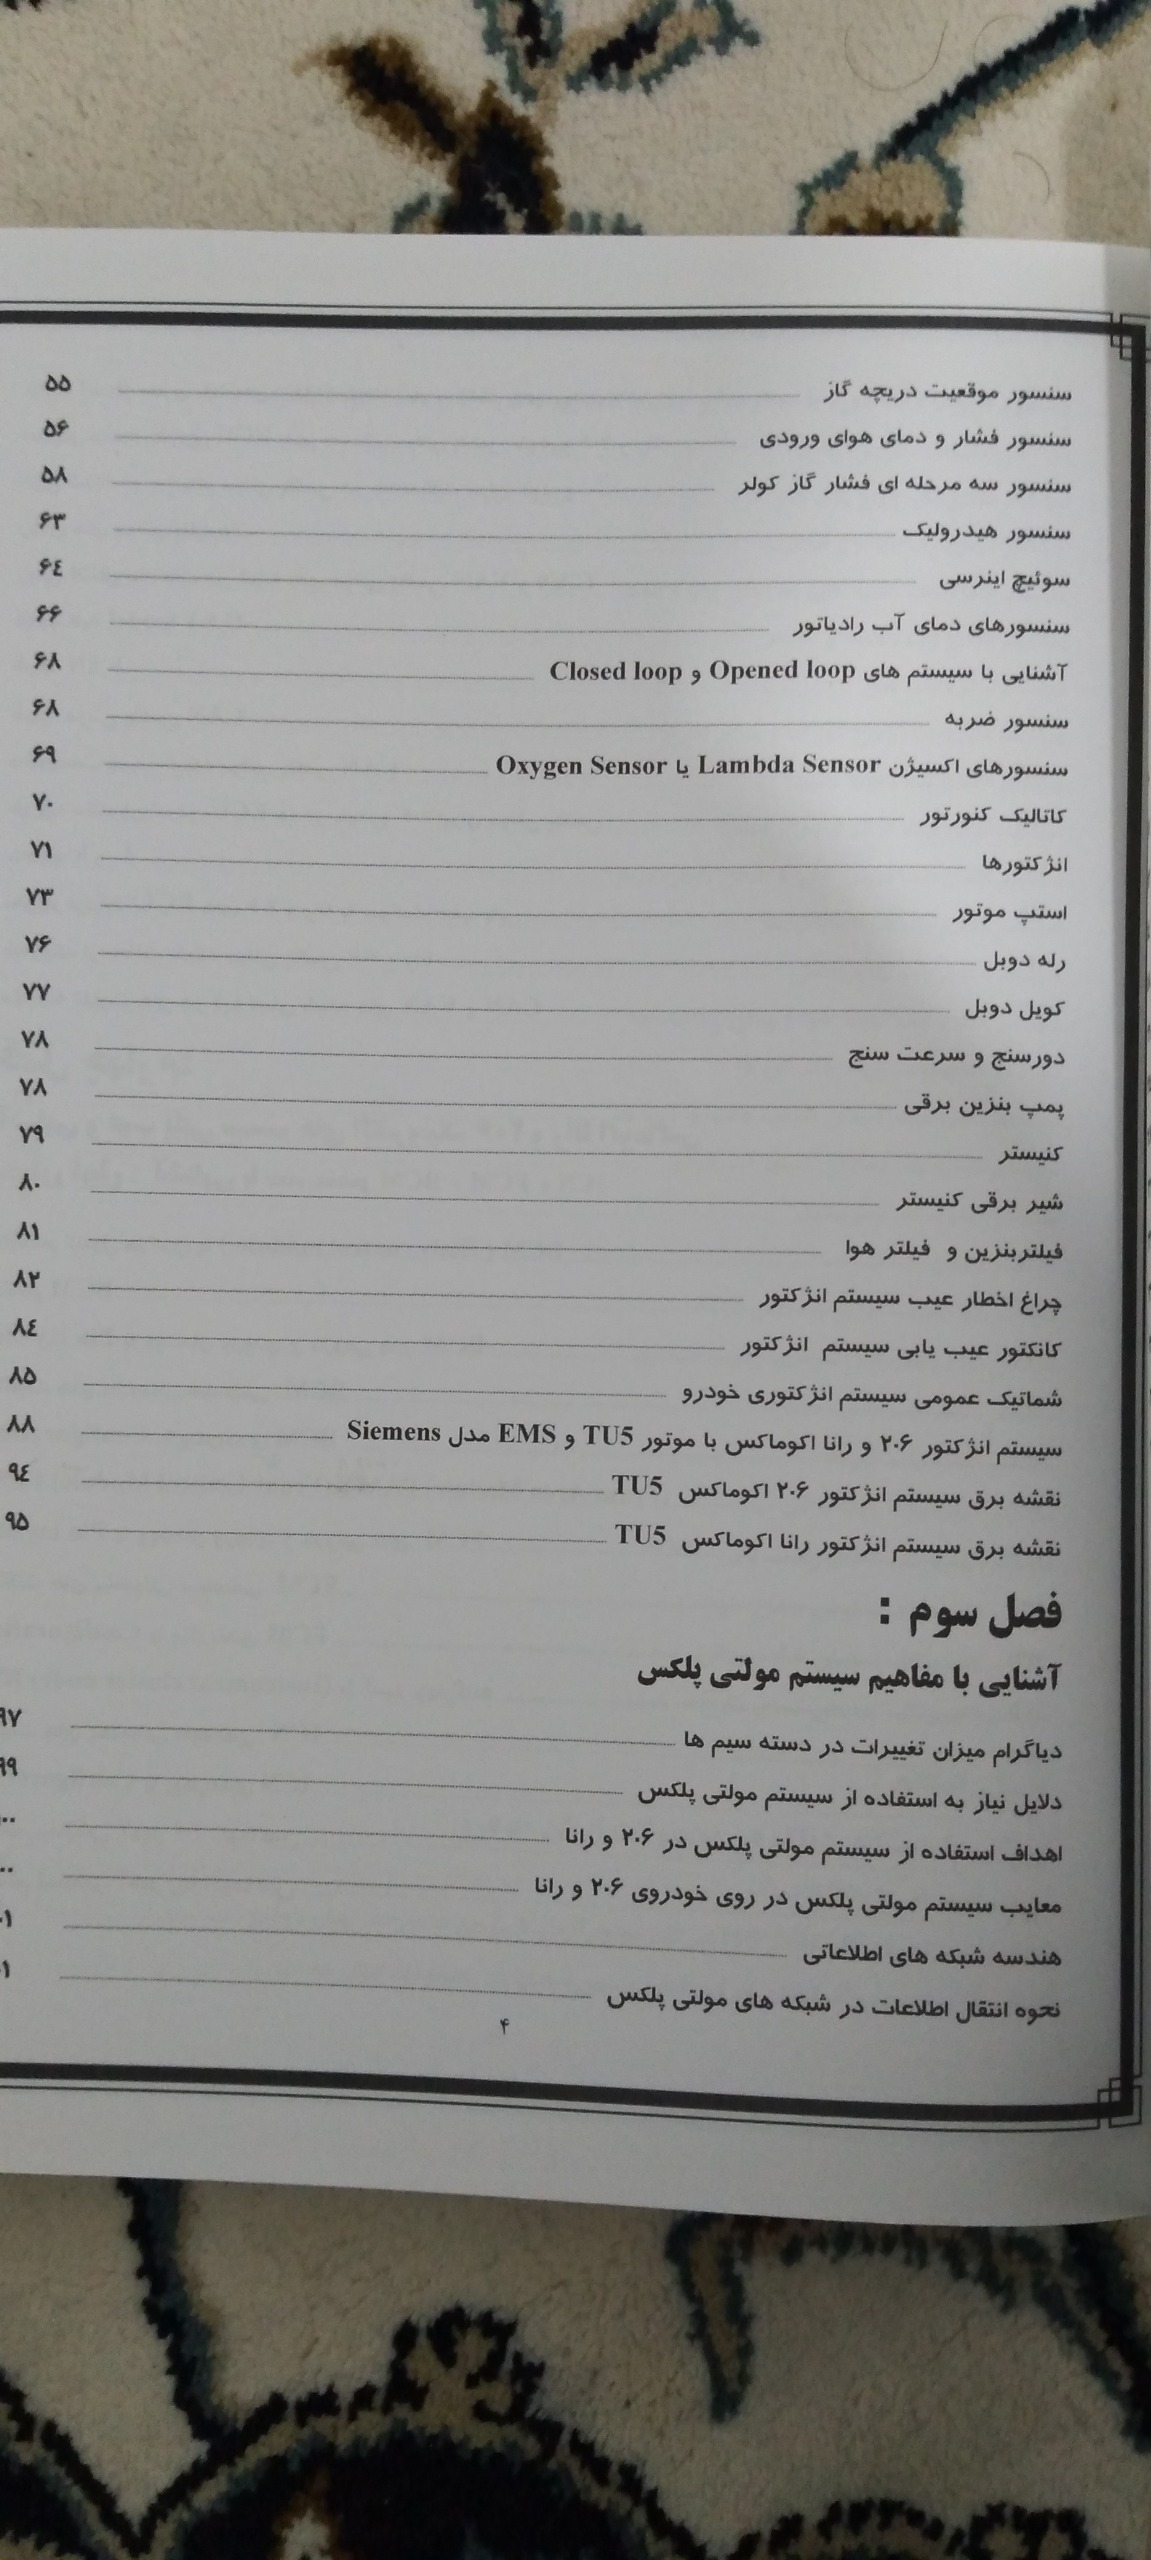 سنسور موقعیت دریچه گاز ۵۵
سنسور فشار و دمای هوای ورودی ۵۶
سنسور سه مرحله ای فشار گاز کولر ۵۸
سنسور هیدرولیک ۶۳
سوئیچ اینرسی ۶٤
سنسورهای دمای آب رادیاتور ۶۶
آشنایی با سیستم های Opened loop و Closed loop ۶۸
سنسور ضربه ۶۸
سنسورهای اکسیژن Lambda Sensor یا Oxygen Sensor ۶۹
کاتالیک کنورتور ۷۰
انژکتورها ۷۱
استپ موتور ۷۳
رله دوبل ۷۶
کویل دوبل ۷۷
دورسنج و سرعت سنج ۷۸
پمپ بنزین برقی ۷۸
کنیستر ۷۹
شیر برقی کنیستر ۸۰
فیلتربنزین و فیلتر هوا ۸۱
چراغ اخطار عیب سیستم انژکتور ۸۲
کانکتور عیب یابی سیستم انژکتور ۸٤
شماتیک عمومی سیستم انژکتوری خودرو ۸۵
سیستم انژکتور ۲۰۶ و رانا اکوماکس با موتور TU5 و EMS مدل Siemens ۸۸
نقشه برق سیستم انژکتور ۲۰۶ اکوماکس TU5 ۹٤
نقشه برق سیستم انژکتور رانا اکوماکس TU5 ۹۵
فصل سوم :
آشنایی با مفاهیم سیستم مولتی پلکس
دیاگرام میزان تغییرات در دسته سیم ها ۹۷
دلایل نیاز به استفاده از سیستم مولتی پلکس ۹۹
اهداف استفاده از سیستم مولتی پلکس در ۲۰۶ و رانا
معایب سیستم مولتی پلکس در روی خودروی ۲۰۶ و رانا
هندسه شبکه های اطلاعاتی
نحوه انتقال اطلاعات در شبکه های مولتی پلکس
۴